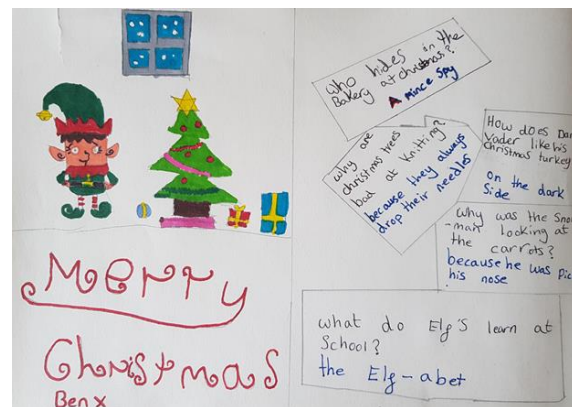 Merry
Christmas
Ben x
Who hides in the
Bakery at christmas?
A mince spy
why are
christmas trees
bad at knitting?
because they always
drop their needles
How does Dar
Vader like his
christmas turkey
on the dark
Side
Why was the Snow
-man looking at
the carrots?
because he was Pic
his nose
what do Elf's learn at
School?
the Elf-abet